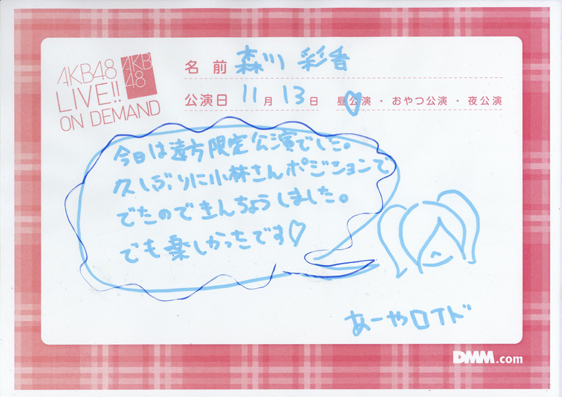 AKB48
LIVE!!
ON DEMAND
AKB
48
名前 森川 彩香
公演日 11月13日 昼公演・おやつ公演・夜公演
今日は遠方限定公演でした。
久しぶりに小林さんポジションで
でたのできんちょうしました。
でも楽しかったです♡
あーやロイド
DMM.com